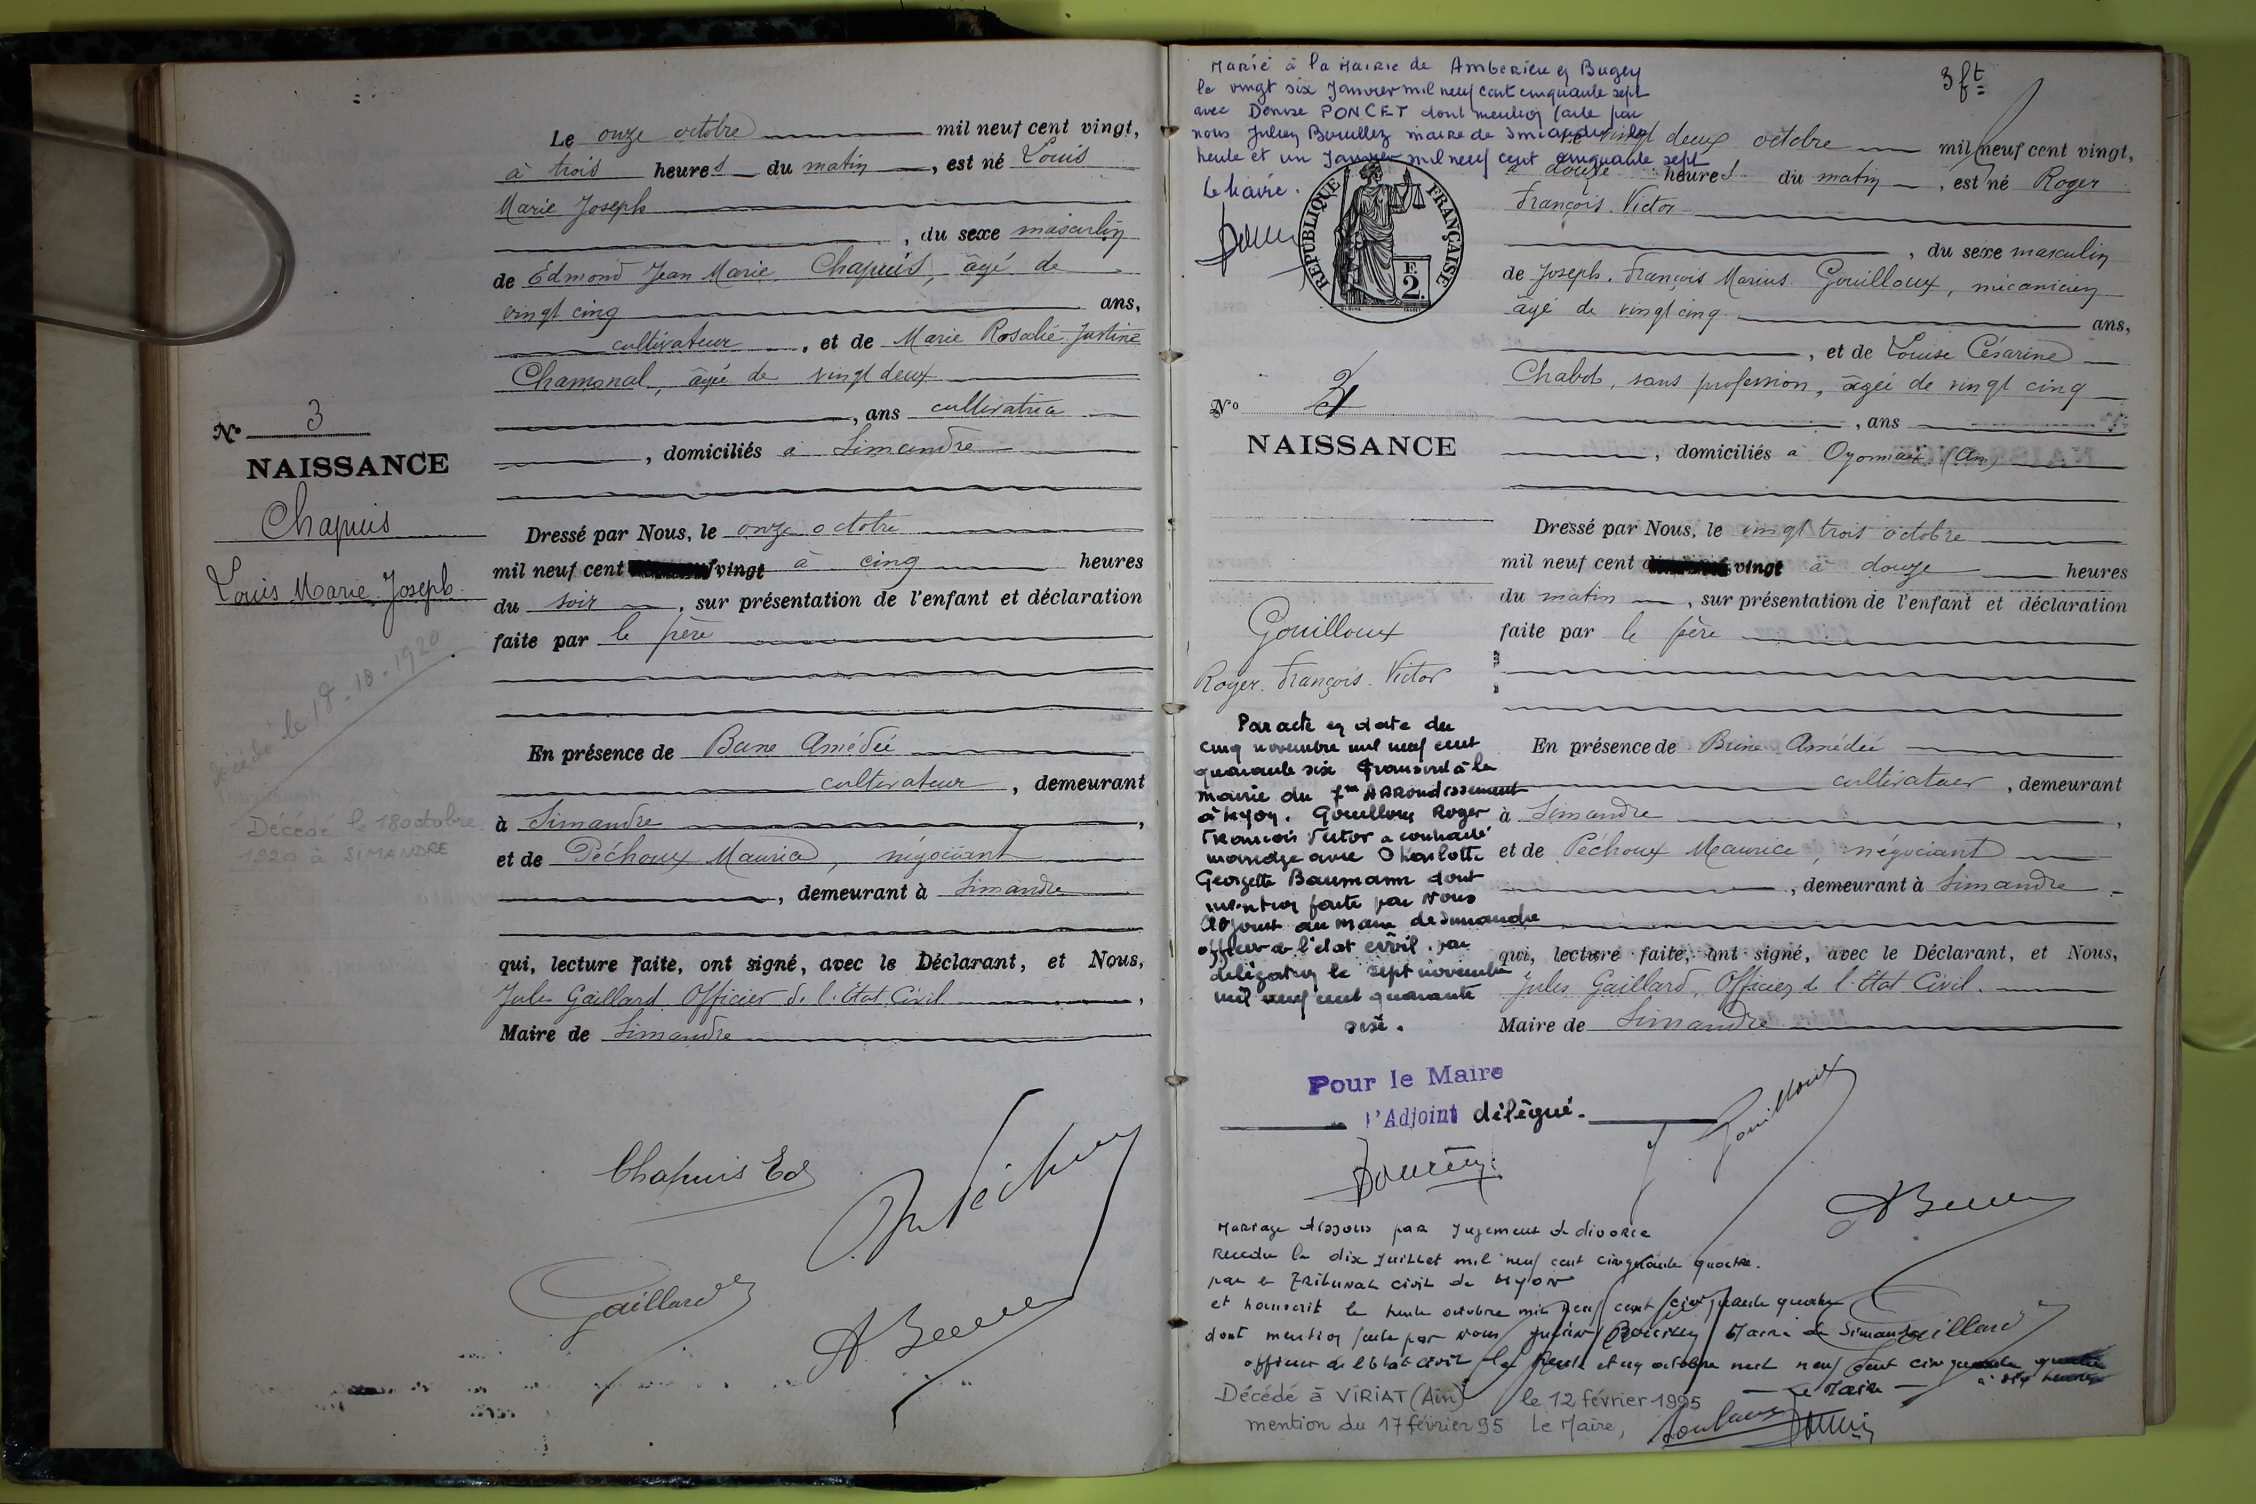 Le onze octobre mil neuf cent vingt,
à trois heures du matin, est né Louis
Marie Joseph
, du sexe masculin
de Edmond Jean Marie Chapuis, âgé de
vingt cinq ans,
cultivateur, et de Marie Rosalie Justine
Chamonal, âgée de vingt deux
, ans cultivatrice
, domiciliés à Simandre
Nº 3
NAISSANCE
Chapuis
Louis Marie Joseph
Décédé le 18-10-1920
Décédé le 18 octobre
1920 à SIMANDRE
Dressé par Nous, le onze octobre
mil neuf cent vingt à cinq heures
du soir, sur présentation de l'enfant et déclaration
faite par le père
En présence de Amédée
cultivateur, demeurant
à Simandre,
et de Péchoux Maurice, négociant
, demeurant à Simandre
qui, lecture faite, ont signé, avec le Déclarant, et Nous,
Jules Gaillard Officier de l'Etat Civil,
Maire de Simandre
Chapuis Ed
Gaillard
Marié à la Mairie de Amberieu en Bugey
le vingt six Janvier mil neuf cent cinquante sept
avec Denise PONCET dont mention faite par
nous Julien maire de Simandre le
trente et un Janvier mil neuf cent cinquante sept
Le Maire.
3 ft
RÉPUBLIQUE FRANÇAISE
F.
2.
Le vingt deux octobre mil neuf cent vingt,
à douze heures du matin, est né Roger
François Victor
, du sexe masculin
de Joseph François Marius Gouilloux, mécanicien
âgé de vingt cinq ans,
, et de Louise Césarine
Chabot, sans profession, âgée de vingt cinq
, ans
, domiciliés à Oyonnax (Ain)
Nº 4
NAISSANCE
Gouilloux
Roger François Victor
Dressé par Nous, le vingt trois octobre
mil neuf cent vingt à douze heures
du matin, sur présentation de l'enfant et déclaration
faite par le père
En présence de Amédée
cultivateur, demeurant
à Simandre,
et de Péchoux Maurice, négociant
, demeurant à Simandre
qui, lecture faite, ont signé, avec le Déclarant, et Nous,
Jules Gaillard, Officier de l'Etat Civil.
Maire de Simandre
Par acte en date du
cinq novembre mil neuf cent
quarante six transcrit à la
mairie du 7me ARRondissement
à Lyon. Gouilloux Roger
François Victor a contracté
mariage avec Charlotte
Georgette Baumann dont
mention faite par Nous
Adjoint au maire de Simandre
officier de l'état civil par
délégation le sept novembre
mil neuf cent quarante
six.
Pour le Maire
l'Adjoint délégué.
J. Gouilloux
Mariage dissous par Jugement de divorce
rendu le dix Juillet mil neuf cent cinquante quatre.
par le Tribunal civil de Lyon
et transcrit le trente octobre mil neuf cent cinquante quatre
dont mention faite par Nous Julien Maire de Simandre
officier de l'Etat Civil le trente et un octobre mil neuf cent cinquante quatre
à dix heures
Le Maire
Gaillard
Décédé à VIRIAT (Ain) le 12 février 1995
mention du 17 février 95 Le Maire,